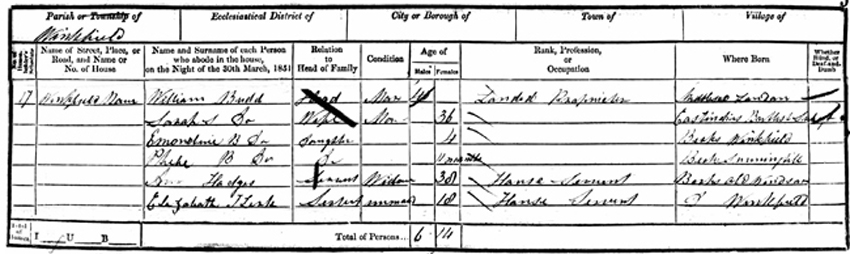 Parish or Township of
Ecclesiastical District of
City or Borough of
Town of
Village of
Winkfield
No. of House-holder's Schedule
Name of Street, Place, or Road, and Name or No. of House
Name and Surname of each Person who abode in the house, on the Night of the 30th March, 1851
Relation to Head of Family
Condition
Age of
Males
Females
Rank, Profession, or Occupation
Where Born
Whether Blind, or Deaf-and-Dumb
17 Winkfield William Budd Head Mar Landed Proprietor Middlesex London
Sarah S Do Wife Mar 36 East Indies
B Do Daughter 4 Berks Winkfield
Phebe B Do Do 11 months Berks Sunninghill
Ann Hodges Servant Widow 38 House Servant Berks Old Windsor
Elizabeth Servant 18 House Servant Do Winkfield
I U B
Total of Persons... 6 1 4